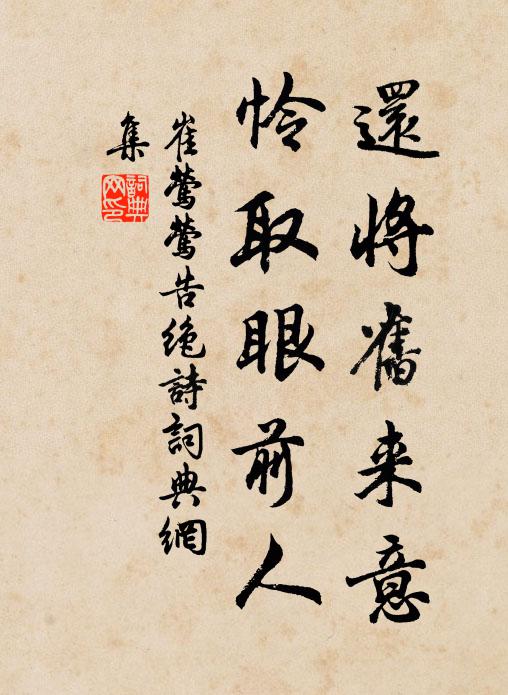 還將舊来意
怜取眼前人
崔鶯鶯告绝詩詞典網
集
詞典
网印